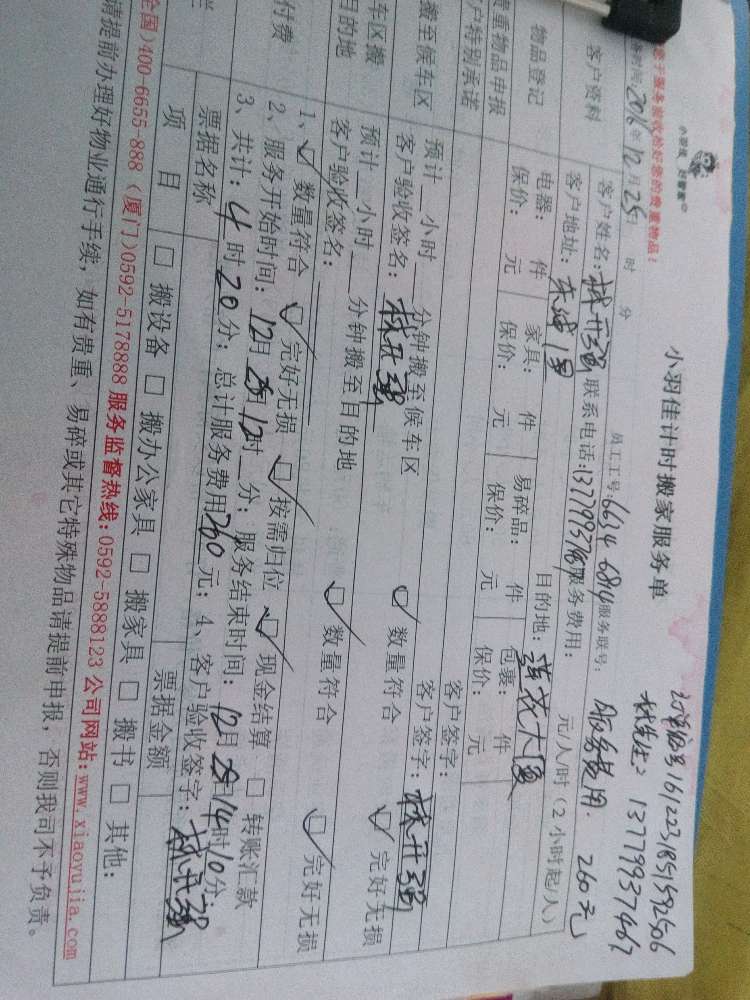 小羽佳计时搬家服务单
订单编号1612231851592506
林先生 13779937467
服务费用: 260元
您于服务验收给好您的贵重物品!
小羽佳 好管家
务时间: 2016年12月25日 时 分
员工工号: 6634 684 服务联号:
客户资料
客户姓名: 林升强 联系电话: 服务费用: 元/人/时(2小时起/人)
客户地址: 目的地: 莲花大厦
物品登记
电器: 件 家具: 件 易碎品: 件 包裹: 件
保价: 元 保价: 元 保价: 元 保价: 元
贵重物品申报 客户签字:
客户特别承诺 客户签字: 林升强
搬至候车区
预计 小时 分钟搬至候车区 数量符合 完好无损
客户验收签名: 林升强
车区搬
目的地
预计 小时 分钟搬至目的地 数量符合 完好无损
客户验收签名:
付费
1、 数量符合 完好无损 按需归位 现金结算 转账汇款
2、服务开始时间: 12月25日12时 分; 服务结束时间: 12月25日14时10分
3、共计: 4时20分; 总计服务费用260元; 4、客户验收签字: 林升强
票据名称 票据金额
项 目 搬设备 搬办公家具 搬家具 搬书 其他:
全国)400-6655-888 (厦门)0592-5178888 服务监督热线: 0592-5888123 公司网站: www.xiaoyujia.com
请提前办理好物业通行手续, 如有贵重、易碎或其它特殊物品请提前申报, 否则我司不予负责。